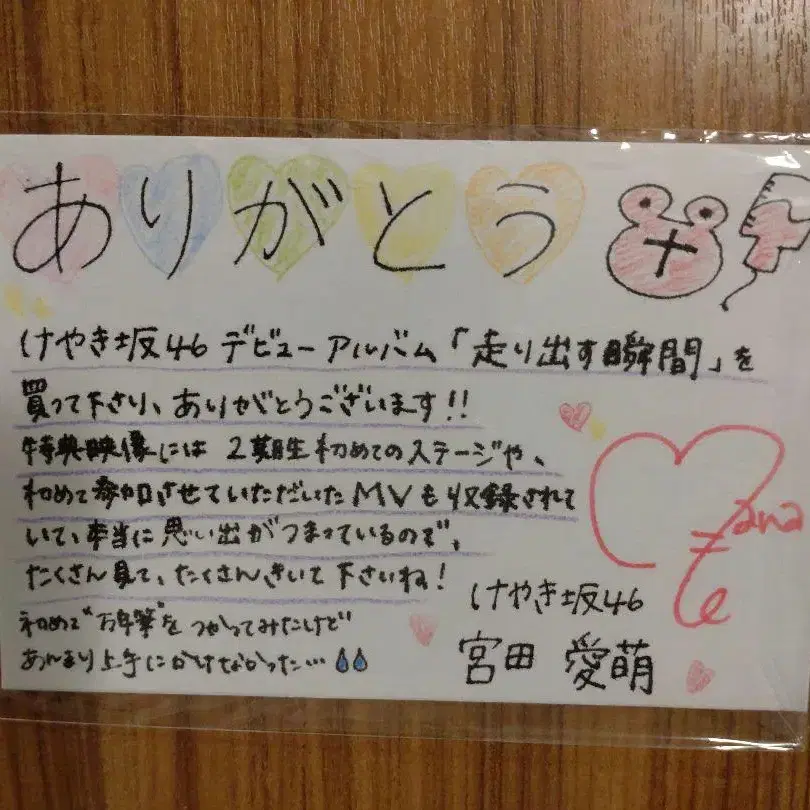 ありがとう
けやき坂46 デビューアルバム「走り出す瞬間」を
買って下さり、ありがとうございます!!
特典映像には 2期生初めてのステージや、
初めて参加させていただいたMVも収録されて
いて、本当に思い出がつまっているので、
たくさん見て、たくさんきいて下さいね!
初めて"万年筆"をつかってみたけど
あんまり上手にかけなかった…
けやき坂46
宮田 愛萌
Mana